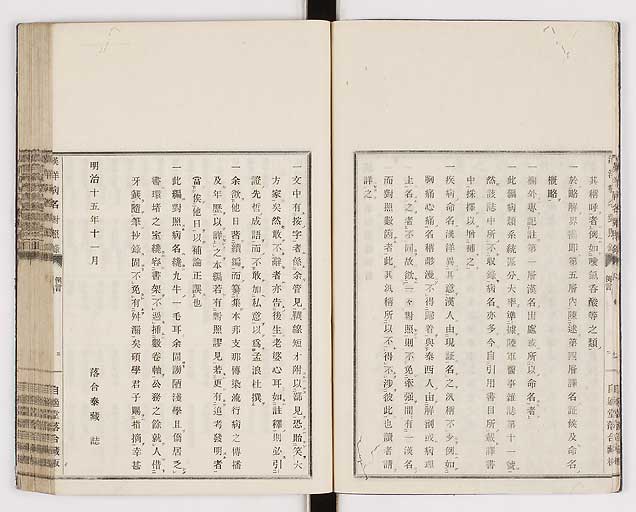 其稱呼者例如喉氣吞酸等之類
一於略解界書即第五層內陳述第四層譯名証候及命名
概略
一欄外專記註第一層漢名出處或所以命名者
一此編病類系統區分大率準據陸軍醫事雜誌第十一號
然該誌中所不收錄病名亦多今自引用書目所載譯書
中採擇以增補之
一疾病命名漢洋異其意漢人由現証名之汎稱不少例如
胸痛心痛名稱散漫不得歸着與泰西人由解剖或病理
上名之者不同故欲一々對照則不免牽强間有一漢名
而對照數箇者此其汎稱所以不得不涉彼此也讀者請
詳之
一文中有按字者係余管見襪線短才附以鄙見恐貽笑大
方家矣然敢不辭者亦告後生老婆心耳如註釋則必引
證先哲成語而不敢加私意以爲孟浪杜撰
一余欲他日著續編而纂集本邦支那傳染流行病之傳播
及年歷以大成之本編若有對照謬見若更有追考發明者
當俟他日以補論正誤也
一此編對照病名纔九牛一毛耳余固謭陋淺學且僑居乏
書環堵之室纔容書架不過挿數卷軸公務之餘就人借
牙籤隨筆抄錄固不免有舛漏矣碩學君子賜指摘幸甚
明治十五年十一月
落合泰藏 誌
漢洋病名對照錄
例言
自適堂落合藏版